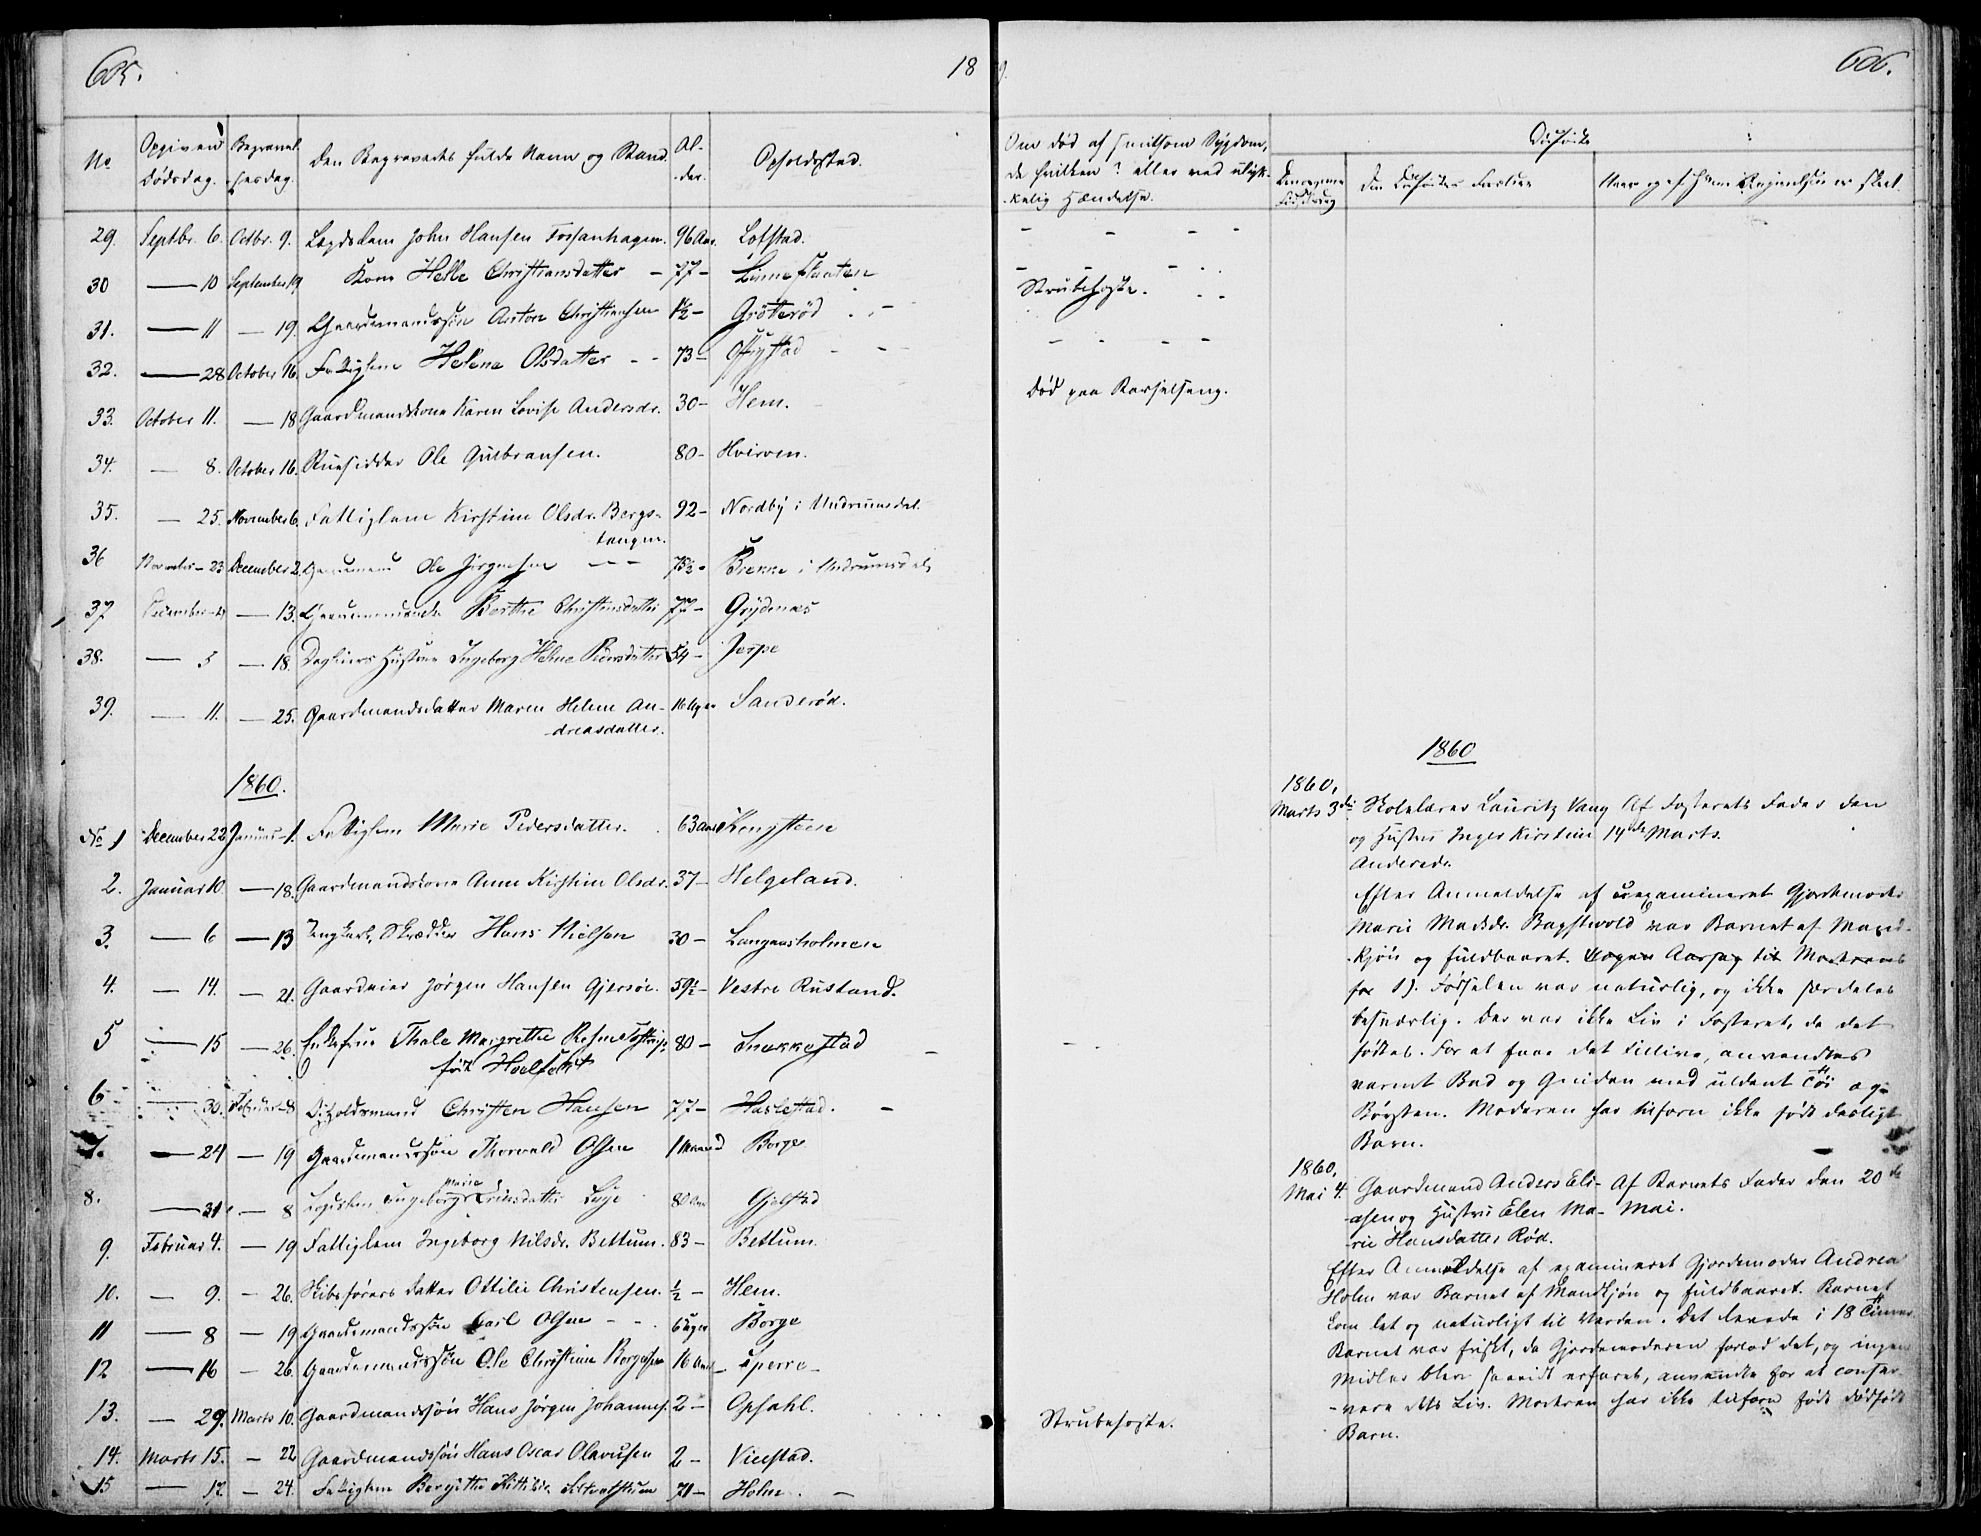 605.
18
No
Opgiven Dødsdag.
Begravelsesdag.
Den Begravedes fulde Navn og Stand.
Alder.
Opholdssted.
29. Septbr. 6. Octbr. 9. Lægdslem John Hansen Fossanhagen. 96 Aar. Lofstad.
30 — 10 September 19 Kone Helle Christiansdatter — 77 — Linnestranten
31. — 11 — 19 Gaardmandssøn Anton Christiansen 1½ — Gröterød
32. — 28 October 16. Fattiglem Helene Olsdatter - - 73 —
33. October 11. — 18 Gaardmandskone Karen Lovise Andersdr. 30 — Hem.
34. — 8. October 16. Huusidder Ole Gulbransen. 80 - Hvirven.
35. — 25. November 6. Fattiglem Kirstine Olsdr. Bergs-
tangen. 92 - Nordby i Undrumsdal
36 November — 23 December 2. Gaardmand Ole Jørgensen — — 73½ - Brekke i Undrumsdal
37 December — 4 — 13. Gaardmandsenke Berthe Christensdatter 77 — Grydenæs
38. — 5 — 18. Dagleiers Hustru Ingeborg Helene Pedersdatter 54 — Jerpe
39. — 11. — 25. Gaardmandsdatter Maren Helene An-
dreasdatter. 16 Uger Sanderød.
1860.
No 1 December 22 Januar — 1. Fattiglem Marie Pedersdatter. 63 Aar
2. Januar 10 — 18. Gaardmandskone Anne Kirstine Olsdr. 37 — Helgeland.
3. — 6 — 13 Ungkarl, Skrædder Hans Nielsen 30 — Langaasholmen
4. — 14. — 21. Gaardeier Jørgen Hansen Gjersøe. 59½ — Vestre Rustand.
5 — 15 — 26. Enkefrue Thale Margrethe
född 80 — Snekkestad
6 — 30. Februar — 8 Opholdsmand Christen Hansen 77 — Haslestad.
7. — 24 — 19 Gaardmandssøn Thorvald Olsen 1 Maaned Borge
8. — 31 — 8 Lægdslem Ingeborg Marie 80 Aar Gjelstad
9. Februar 4. — 19 Fattiglem Ingeborg Nilsdr. Bettum. 83 — Bettum
10. — 9. — 26. Skibsførers datter Ottilie Christensen. ½ — Hem.
11 — 8 — 19 Gaardmandssøn Carl Olsen - - 6 Uger Borge
12 — 16 — 26. Gaardmandssøn Ole Christian Borgersen 16 Aar Sperre
13. — 29. Marts 10. Gaardmandssøn Hans Jørgen Johannes. 2 — Opsahl.
14. Marts 15. — 22 Gaardmandssøn Hans Oscar Olavusen 2 — Viulstad.
15 — 12 — 24. Fattiglem Bergitte Kittilsdr. 71 — Holm.
9.
606.
Om død af smitsom Sygdom,
da hvilken? eller ved ulyk-
kelig Hændelse.
Dødfødte
Den Dødfødtes Forældre
Naar og af hvem Anmeldelsen er skeet.
Strubehoste.
død paa Barselseng.
Strubehoste.
1860
1860,
Marts 3die Skolelærer Lauritz Vang
og Hustru Inger Kirstine
Andersdr.
Af Fosterets Fader den
14de Marts.
Efter Anmeldelse af uexamineret Gjordemoder
Marie Madsdr. Bagstvold var Barnet af Mand-
kjøn og fuldbaaret. Nogen Aarsag til Moderens
for 1). Fødselen var naturlig, og ikke særdeles
besværlig. Der var ikke Liv i Fosteret, da det
fødtes. For at faae det tillive, anvendtes
varmt Bad og Gniden med uldent Tøi og
Børsten. Moderen har tilforn ikke født dødfødt
Barn.
1860,
Mai 4. Gaardmand Anders Eli-
asen og Hustru Elen Ma-
rie Hansdatter Rød.
Af Barnets Fader den 20de
Mai.
Efter Anmeldelse af examineret Gjordemoder Andrea
Holm var Barnet af Mandkjøn og fuldbaaret. Barnet
kom let og naturligt til Verden. Det levede i 18 Timer.
Barnet var friskt, da Gjordemoderen forlod det, og ingen
Midler blev saavidt erfaret, anvendte for at conser-
vere dets Liv. Moderen har ikke tilforn født dødfødt
Barn.